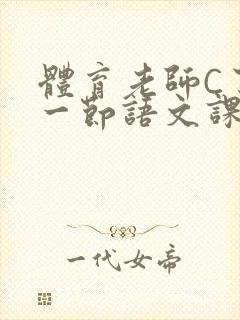 體育老師C
一節語文課
一代女帝